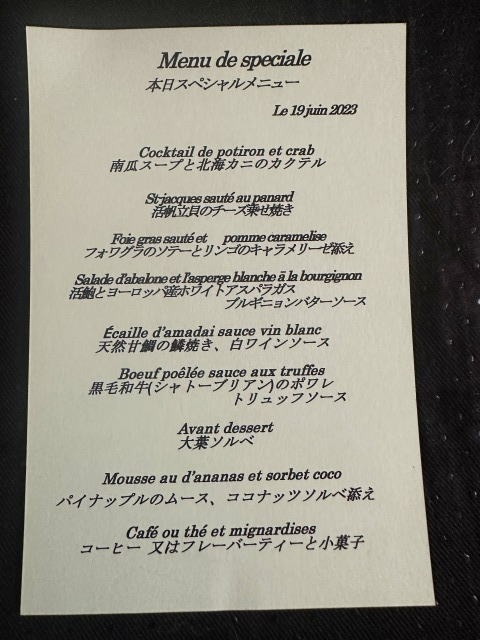 Menu de speciale
本日スペシャルメニュー
Le 19 juin 2023
Cocktail de potiron et crab
南瓜スープと北海カニのカクテル
St-jacques sauté au panard
活帆立貝のチーズ乗せ焼き
Foie gras sauté et pomme caramelise
フォワグラのソテーとリンゴのキャラメリーゼ添え
Salade d'abalone et l'asperge blanche ā la bourgignon
活鮑とヨーロッパ産ホワイトアスパラガス
ブルギニョンバターソース
Écaille d'amadai sauce vin blanc
天然甘鯛の鱗焼き、白ワインソース
Boeuf poêlée sauce aux truffes
黒毛和牛(シャトーブリアン)のポワレ
トリュッフソース
Avant dessert
大葉ソルベ
Mousse au d'ananas et sorbet coco
パイナップルのムース、ココナッツソルベ添え
Café ou thé et mignardises
コーヒー 又はフレーバーティーと小菓子